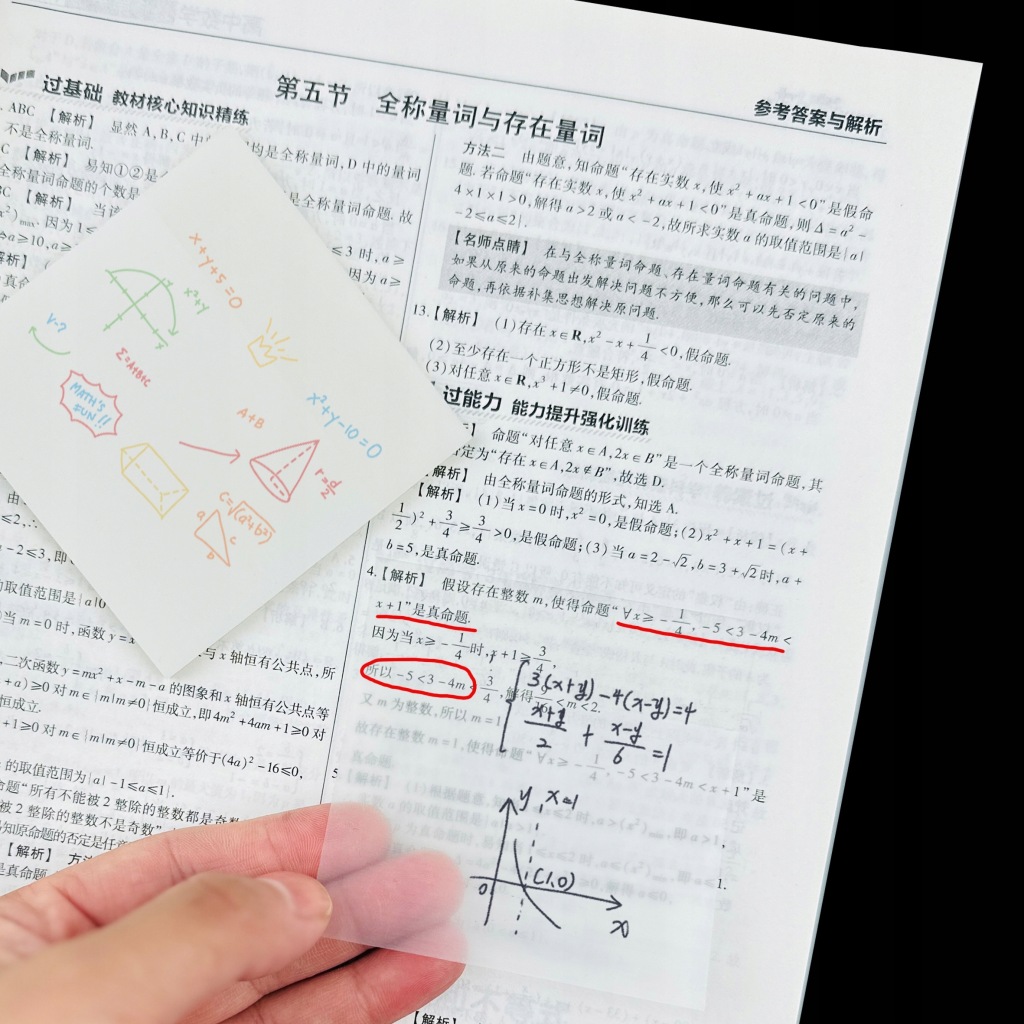 第五节 全称量词与存在量词
参考答案与解析
过基础 教材核心知识精练
ABC 【解析】 显然 A,B,C 中
均是全称量词,D 中的量词
不是全称量词.
C 【解析】 易知①②是
全称量词命题. 故
全称量词命题的个数是
BC 【解析】 当该
≤3 时,a≥
因为 a≥
x+y+5=0
x²+y
V-?
Σ=A+B+C
MATH'S
FUN!!
A+B
x²+y-10=0
C=√(a²+b²)
a
c
b
-2≤3,即
的取值范围是{a|0
当 m=0 时,函数 y=x
与 x 轴恒有公共点,所
二次函数 y=mx²+x-m-a 的图象和 x 轴恒有公共点等
+a)≥0 对 m∈{m|m≠0}恒成立,即4m²+4am+1≥0 对
恒成立.
+1≥0 对 m∈{m|m≠0}恒成立等价于(4a)²-16≤0,
的取值范围为{a|-1≤a≤1}.
命题“所有不能被 2 整除的整数都是奇数
被 2 整除的整数不是奇数”
易知原命题的否定是任意
【解析】 方法
是真命题
方法二 由题意,知命题“存在实数 x,使 x²+ax+1<0”是假命
题. 若命题“存在实数 x,使 x²+ax+1<0”是真命题,则 Δ=a²-
4×1×1>0,解得 a>2 或 a<-2,故所求实数 a 的取值范围是{a|
-2≤a≤2}.
【名师点睛】 在与全称量词命题、存在量词命题有关的问题中,
如果从原来的命题出发解决问题不方便,那么可以先否定原来的
命题,再依据补集思想解决原问题.
13.【解析】 (1)存在 x∈R,x²-x+1/4<0,假命题.
(2)至少存在一个正方形不是矩形,假命题.
(3)对任意 x∈R,x³+1≠0,假命题.
过能力 能力提升强化训练
命题“对任意 x∈A,2x∈B”是一个全称量词命题,其
否定为“存在 x∈A,2x∉B”,故选 D.
【解析】 由全称量词命题的形式,知选 A.
【解析】 (1)当 x=0 时,x²=0,是假命题;(2)x²+x+1=(x+
1/2)²+3/4≥3/4>0,是假命题;(3)当 a=2-√2,b=3+√2时,a+
b=5,是真命题.
4.【解析】 假设存在整数 m,使得命题“∀x≥-1/4,-5<3-4m<
x+1”是真命题.
因为当 x≥-1/4时,x+1≥3/4,
所以-5<3-4m<3/4,解得9/16<m<2.
又 m 为整数,所以 m=1
故存在整数 m=1,使得命题“∀x≥-1/4,-5<3-4m<x+1”是
真命题.
3(x+y)-4(x-y)=4
x+y/2+x-y/6=1
y
x=1
(1,0)
0
x
【解析】